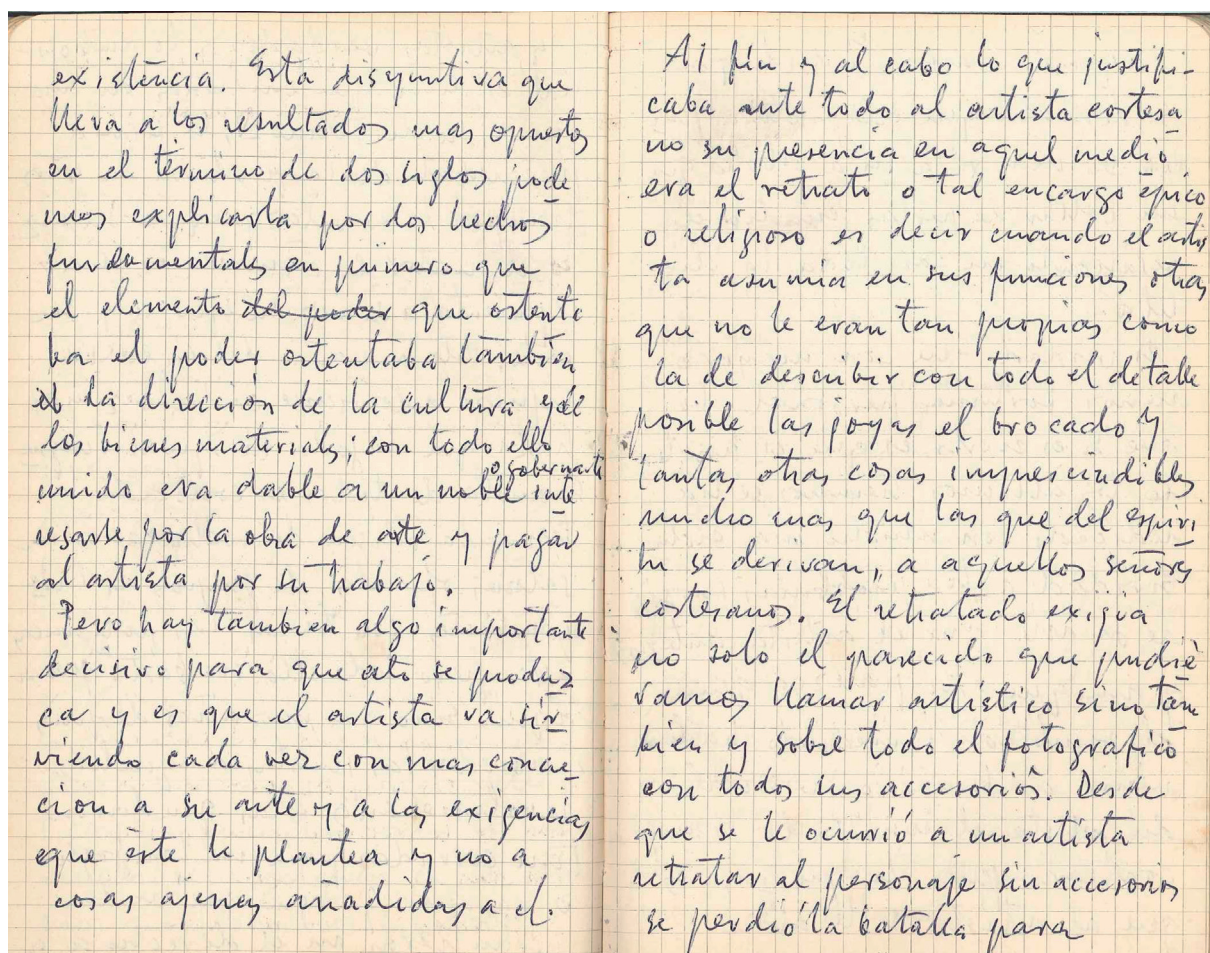 existencia. Esta disyuntiva que
lleva a los resultados mas opuestos
en el término de dos siglos pode
mos explicarla por dos hechos
fundamentales en primero que
el elemento del poder que ostenta
ba el poder ostentaba también
el la dirección de la cultura y de
los bienes materiales; con todo ello
o gobernante
unido era dable a un noble inte
resarse por la obra de arte y pagar
al artista por su trabajo.
Pero hay tambien algo importante
decisivo para que esto se produz
ca y es que el artista va sir
viendo cada vez con mas
cion a su arte y a las exigencias
que éste le plantea y no a
cosas ajenas añadidas a el.
Al fin y al cabo lo que justifi-
caba ante todo al artista cortesa
no su presencia en aquel medio
era el retrato o tal encargo épico
o religioso es decir cuando el artis
ta asumia en sus funciones otras
que no le eran tan propias como
la de describir con todo el detalle
posible las joyas el brocado y
tantas otras cosas imprescindibles
mucho mas que las que del espiri
tu se derivan, a aquellos señores
cortesanos. El retratado exijia
no solo el parecido que pudié
ramos llamar artistico sino tam
bien y sobre todo el fotografico
con todos sus accesorios. Desde
que se le ocurrió a un artista
retratar al personaje sin accesorios
se perdió la batalla para